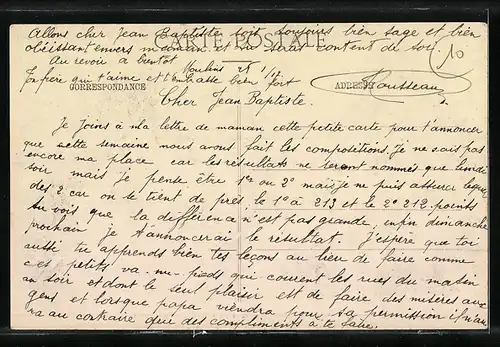 Allons cher Jean Baptiste sois toujours bien sage et bien
obéissant envers maman et tu seras content de toi.
CARTE POSTALE
Au revoir à bientôt Moulins
Ton père qui t'aime et t'embrasse bien fort
CORRESPONDANCE
ADRESSE
Rousseau
10
Cher Jean Baptiste.
Je joins à la lettre de maman cette petite carte pour t'annoncer
que cette semaine nous avons fait les compositions. Je ne sais pas
encore ma place car les résultats ne seront nommés que lundi
soir mais je pense être 1er ou 2e mais je ne puis assurer lequel
des 2 car on le tient de près, le 1er à 213 et le 2e 212 points
tu vois que la différence n'est pas grande, enfin dimanche
prochain je t'annoncerai le résultat. J'espère que toi
aussi tu apprends bien tes leçons au lieu de faire comme
ces petits va-nu-pieds qui courent les rues du matin
au soir et dont le seul plaisir est de faire des misères aux
gens et lorsque papa viendra pour sa permission il n'aura
au contraire que des compliments à te faire.